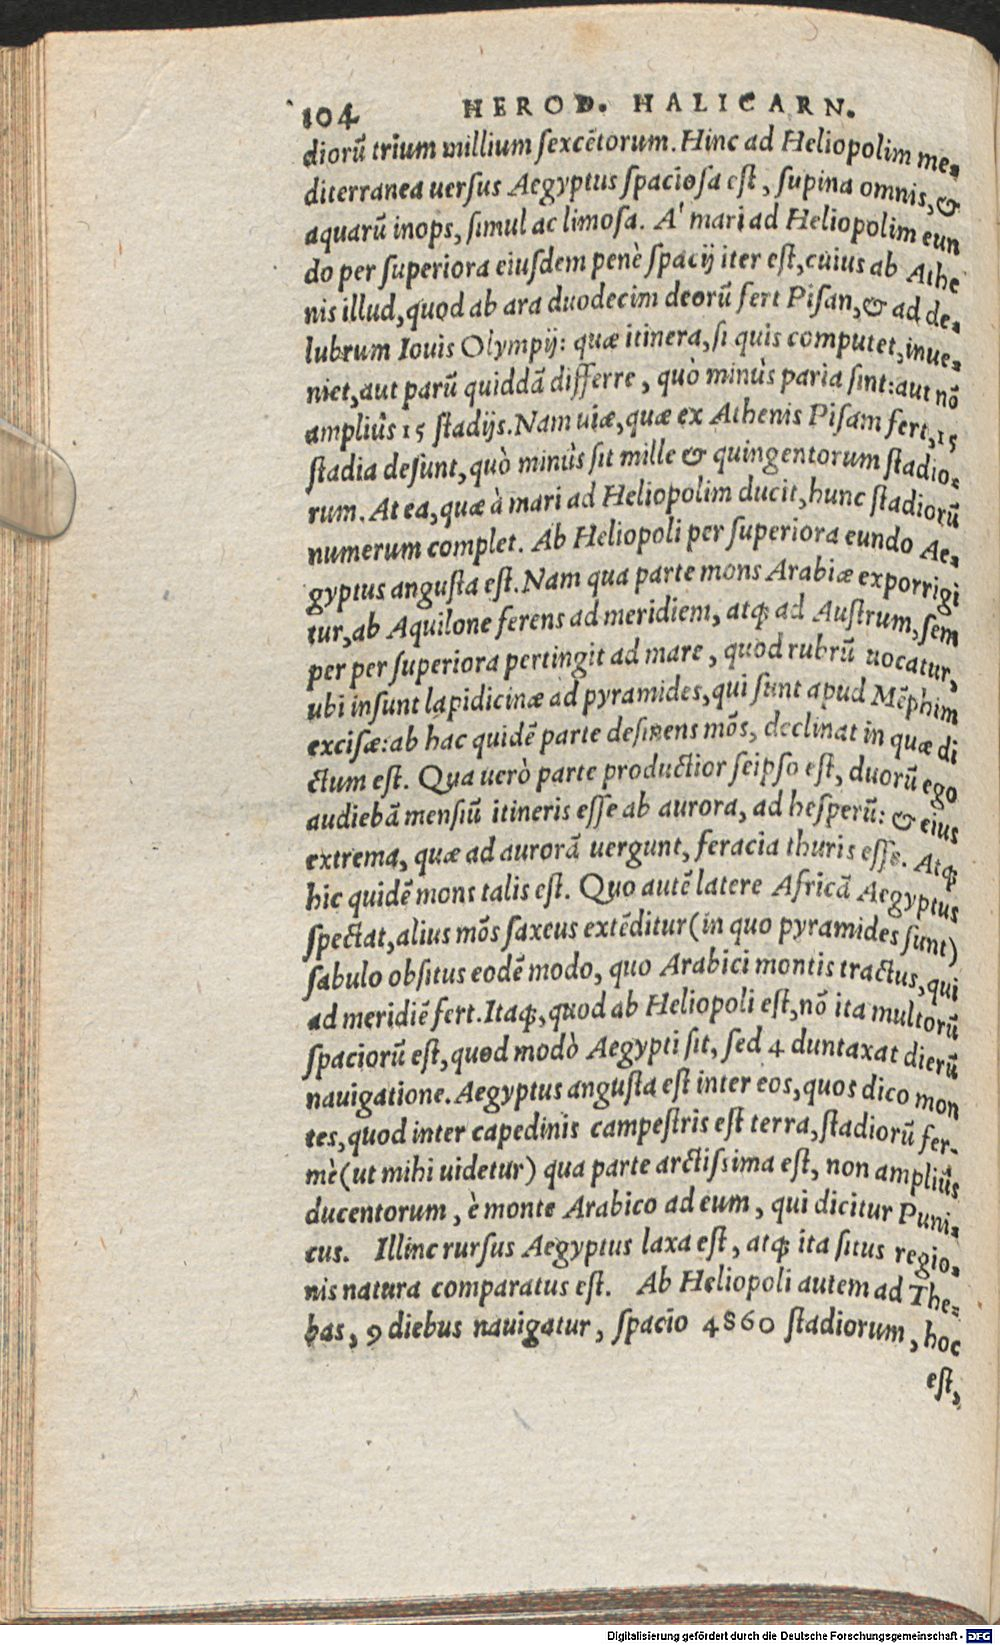 104 HEROD. HALICARN.
diorũ trium millium sexcẽtorum. Hinc ad Heliopolim me-
diterranea uersus Aegyptus spaciosa est, supina omnis, &
aquarũ inops, simul ac limosa. A' mari ad Heliopolim eun
do per superiora eiusdem penè spacij iter est, cuius ab Athe
nis illud, quod ab ara duodecim deorũ fert Pisan, & ad de-
lubrum Iouis Olympij: quæ itinera, si quis computet, inue-
niet, aut parũ quiddã differre, quò minùs paria sint: aut nõ
ampliùs 15 stadijs. Nam uiæ, quæ ex Athenis Pisam fert, 15
stadia desunt, quò minùs sit mille & quingentorum stadio-
rum. At ea, quæ à mari ad Heliopolim ducit, hunc stadiorũ
numerum complet. Ab Heliopoli per superiora eundo Ae-
gyptus angusta est. Nam qua parte mons Arabiæ exporrigi
tur, ab Aquilone ferens ad meridiem, atq; ad Austrum, sem
per per superiora pertingit ad mare, quod rubrũ uocatur,
ubi insunt lapidicinæ ad pyramides, qui sunt apud Mẽphim
excisæ: ab hac quidẽ parte desinens mõs, declinat in quæ di
ctum est. Qua uerò parte productior seipso est, duorũ ego
audiebã mensiũ itineris esse ab aurora, ad hesperũ: & eius
extrema, quæ ad aurorã uergunt, feracia thuris esse. Atq;
hic quidẽ mons talis est. Quo autẽ latere Africã Aegyptus
spectat, alius mõs saxeus extẽditur (in quo pyramides sunt)
sabulo obsitus eodẽ modo, quo Arabici montis tractus, qui
ad meridiẽ fert. Itaq;, quod ab Heliopoli est, nõ ita multorũ
spaciorũ est, quod modò Aegypti sit, sed 4 duntaxat dierũ
nauigatione. Aegyptus angusta est inter eos, quos dico mon
tes, quod inter capedinis campestris est terra, stadiorũ fer-
mè (ut mihi uidetur) qua parte arctissima est, non ampliùs
ducentorum, è monte Arabico ad eum, qui dicitur Puni-
cus. Illinc rursus Aegyptus laxa est, atq; ita situs regio-
nis natura comparatus est. Ab Heliopoli autem ad The-
bas, 9 diebus nauigatur, spacio 4860 stadiorum, hoc
est,
Digitalisierung gefördert durch die Deutsche Forschungsgemeinschaft - DFG